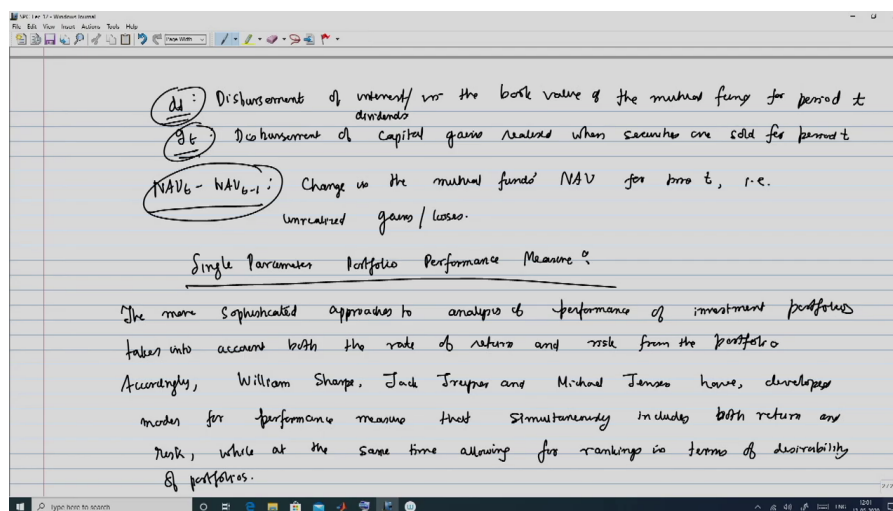 File Edit View Insert Actions Tools Help
Page Width
dt : Disbursement of interest/ in the book value of the mutual fung for period t
dividends
gt : Disbursement of capital gains realized when securities are sold for period t
NAVt - NAVt-1 : Change in the mutual funds' NAV for time t, i.e.
unrealized gains / losses.
Single Parameter Portfolio Performance Measure :
The more sophisticated approaches to analysis of performance of investment portfolios
takes into account both the rate of return and risk from the portfolio
Accordingly, William Sharpe, Jack Treynor and Michael Jensen have, developed
modes for performance measure that simultaneously includes both return and
risk, while at the same time allowing for rankings in terms of desirability
of portfolios.
Type here to search
12:01